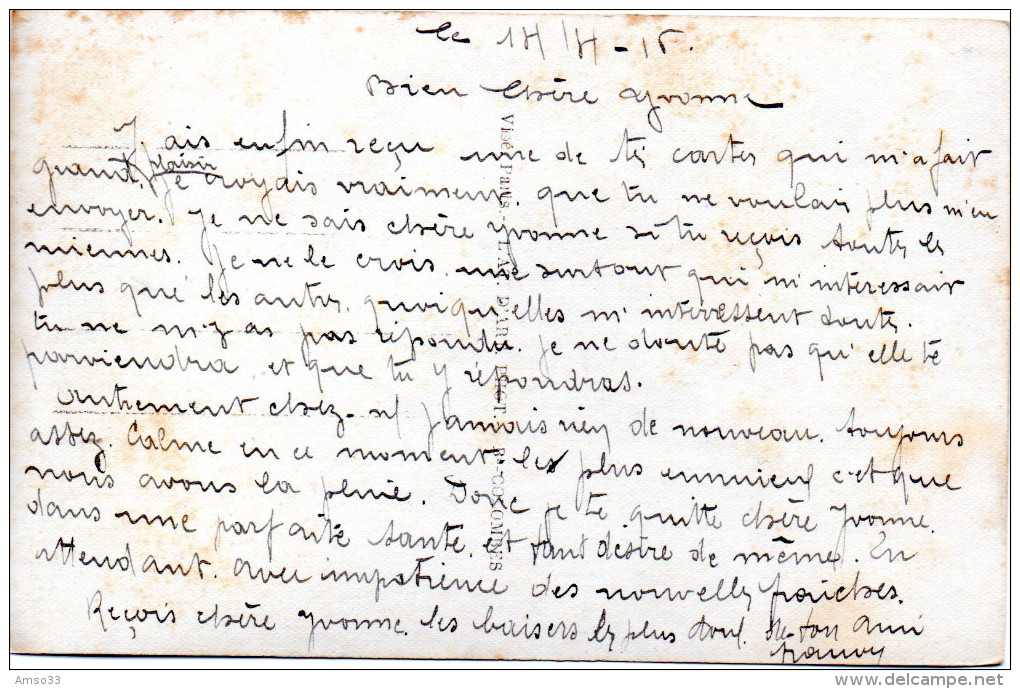 le 14/4-15.
Bien Chère Yvonne
J'ais enfin reçu une de tes cartes qui m'a fait
plaisir
grand, je croyais vraiment que tu ne voulais plus m'en
envoyer. Je ne sais chère Yvonne si tu reçois toutes les
miennes. Je ne le crois. une surtout qui m'interessait
plus que les autres, quoiqu'elles m'interessent toutes.
tu ne m'y as pas répondu. Je ne doute pas qu'elle te
parviendra, et que tu y répondras.
autrement chez-n/ jamais rien de nouveau. toujours
assez Calme en ce moment le plus ennuieux c'et que
nous avons la pluie. Donc je te quitte chère Yvonne.
dans une parfaite santé, et tant desire de même. En
attendant avec impatience des nouvelles fraiches.
Reçois chère Yvonne. les baisers les plus doux de ton ami
Visé Paris
D'ART
COLOMBES
Amso33
www.delcampe.net